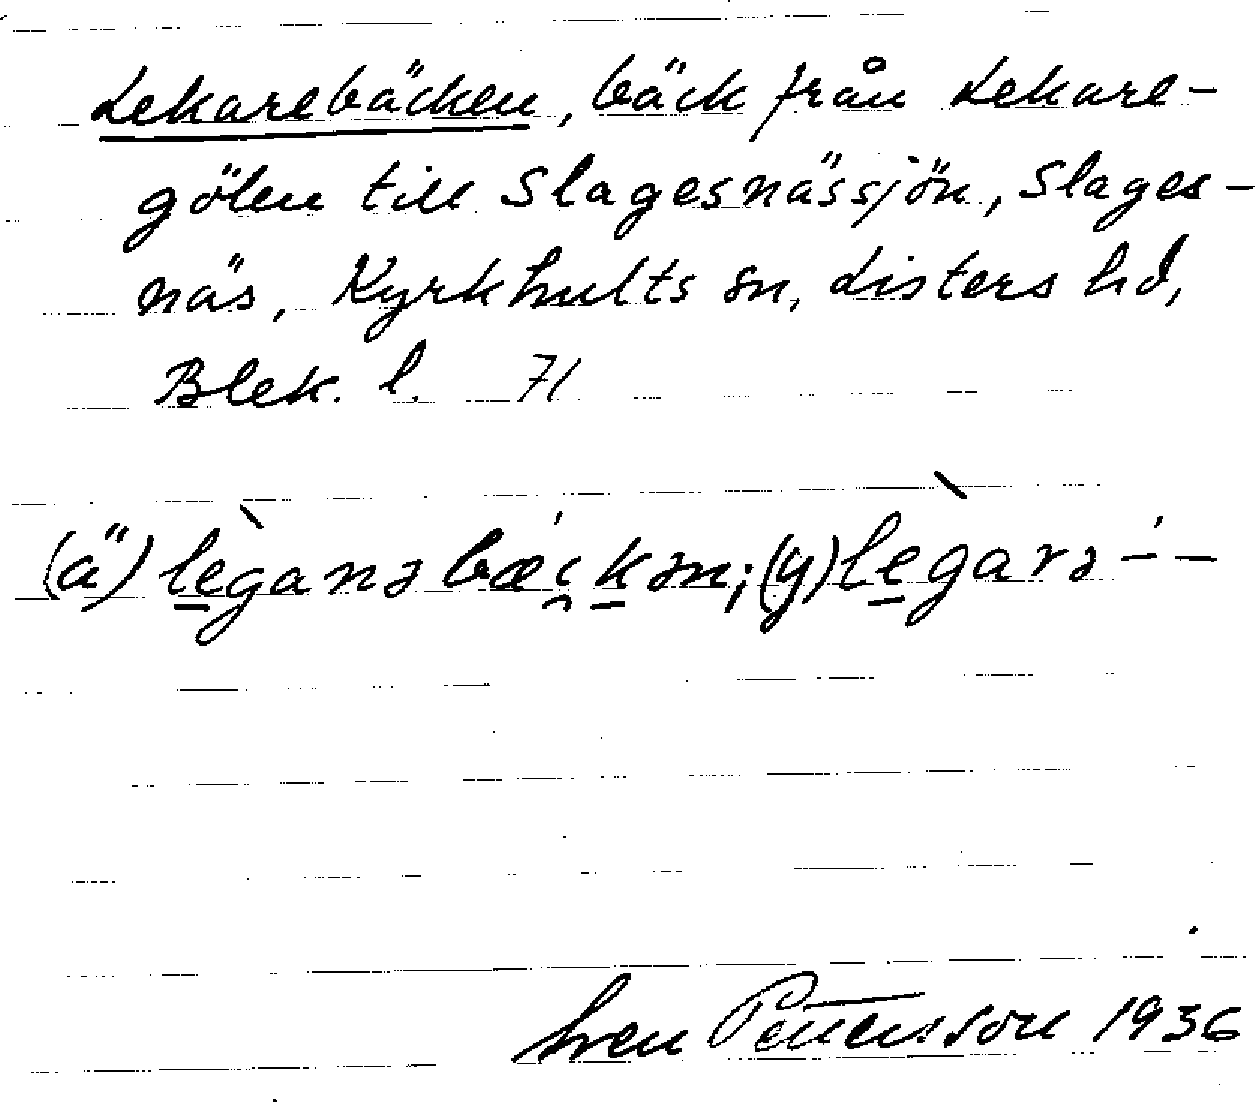 Lekarebäcken, bäck från Lekare-
gölen till Slagesnässjön, Slages-
näs, Kyrkhults sn, Listers hd,
Blek. l. 71
(ä) lèganə bæi̯kən; (y) lègarə - -
Sven Pettersson 1936